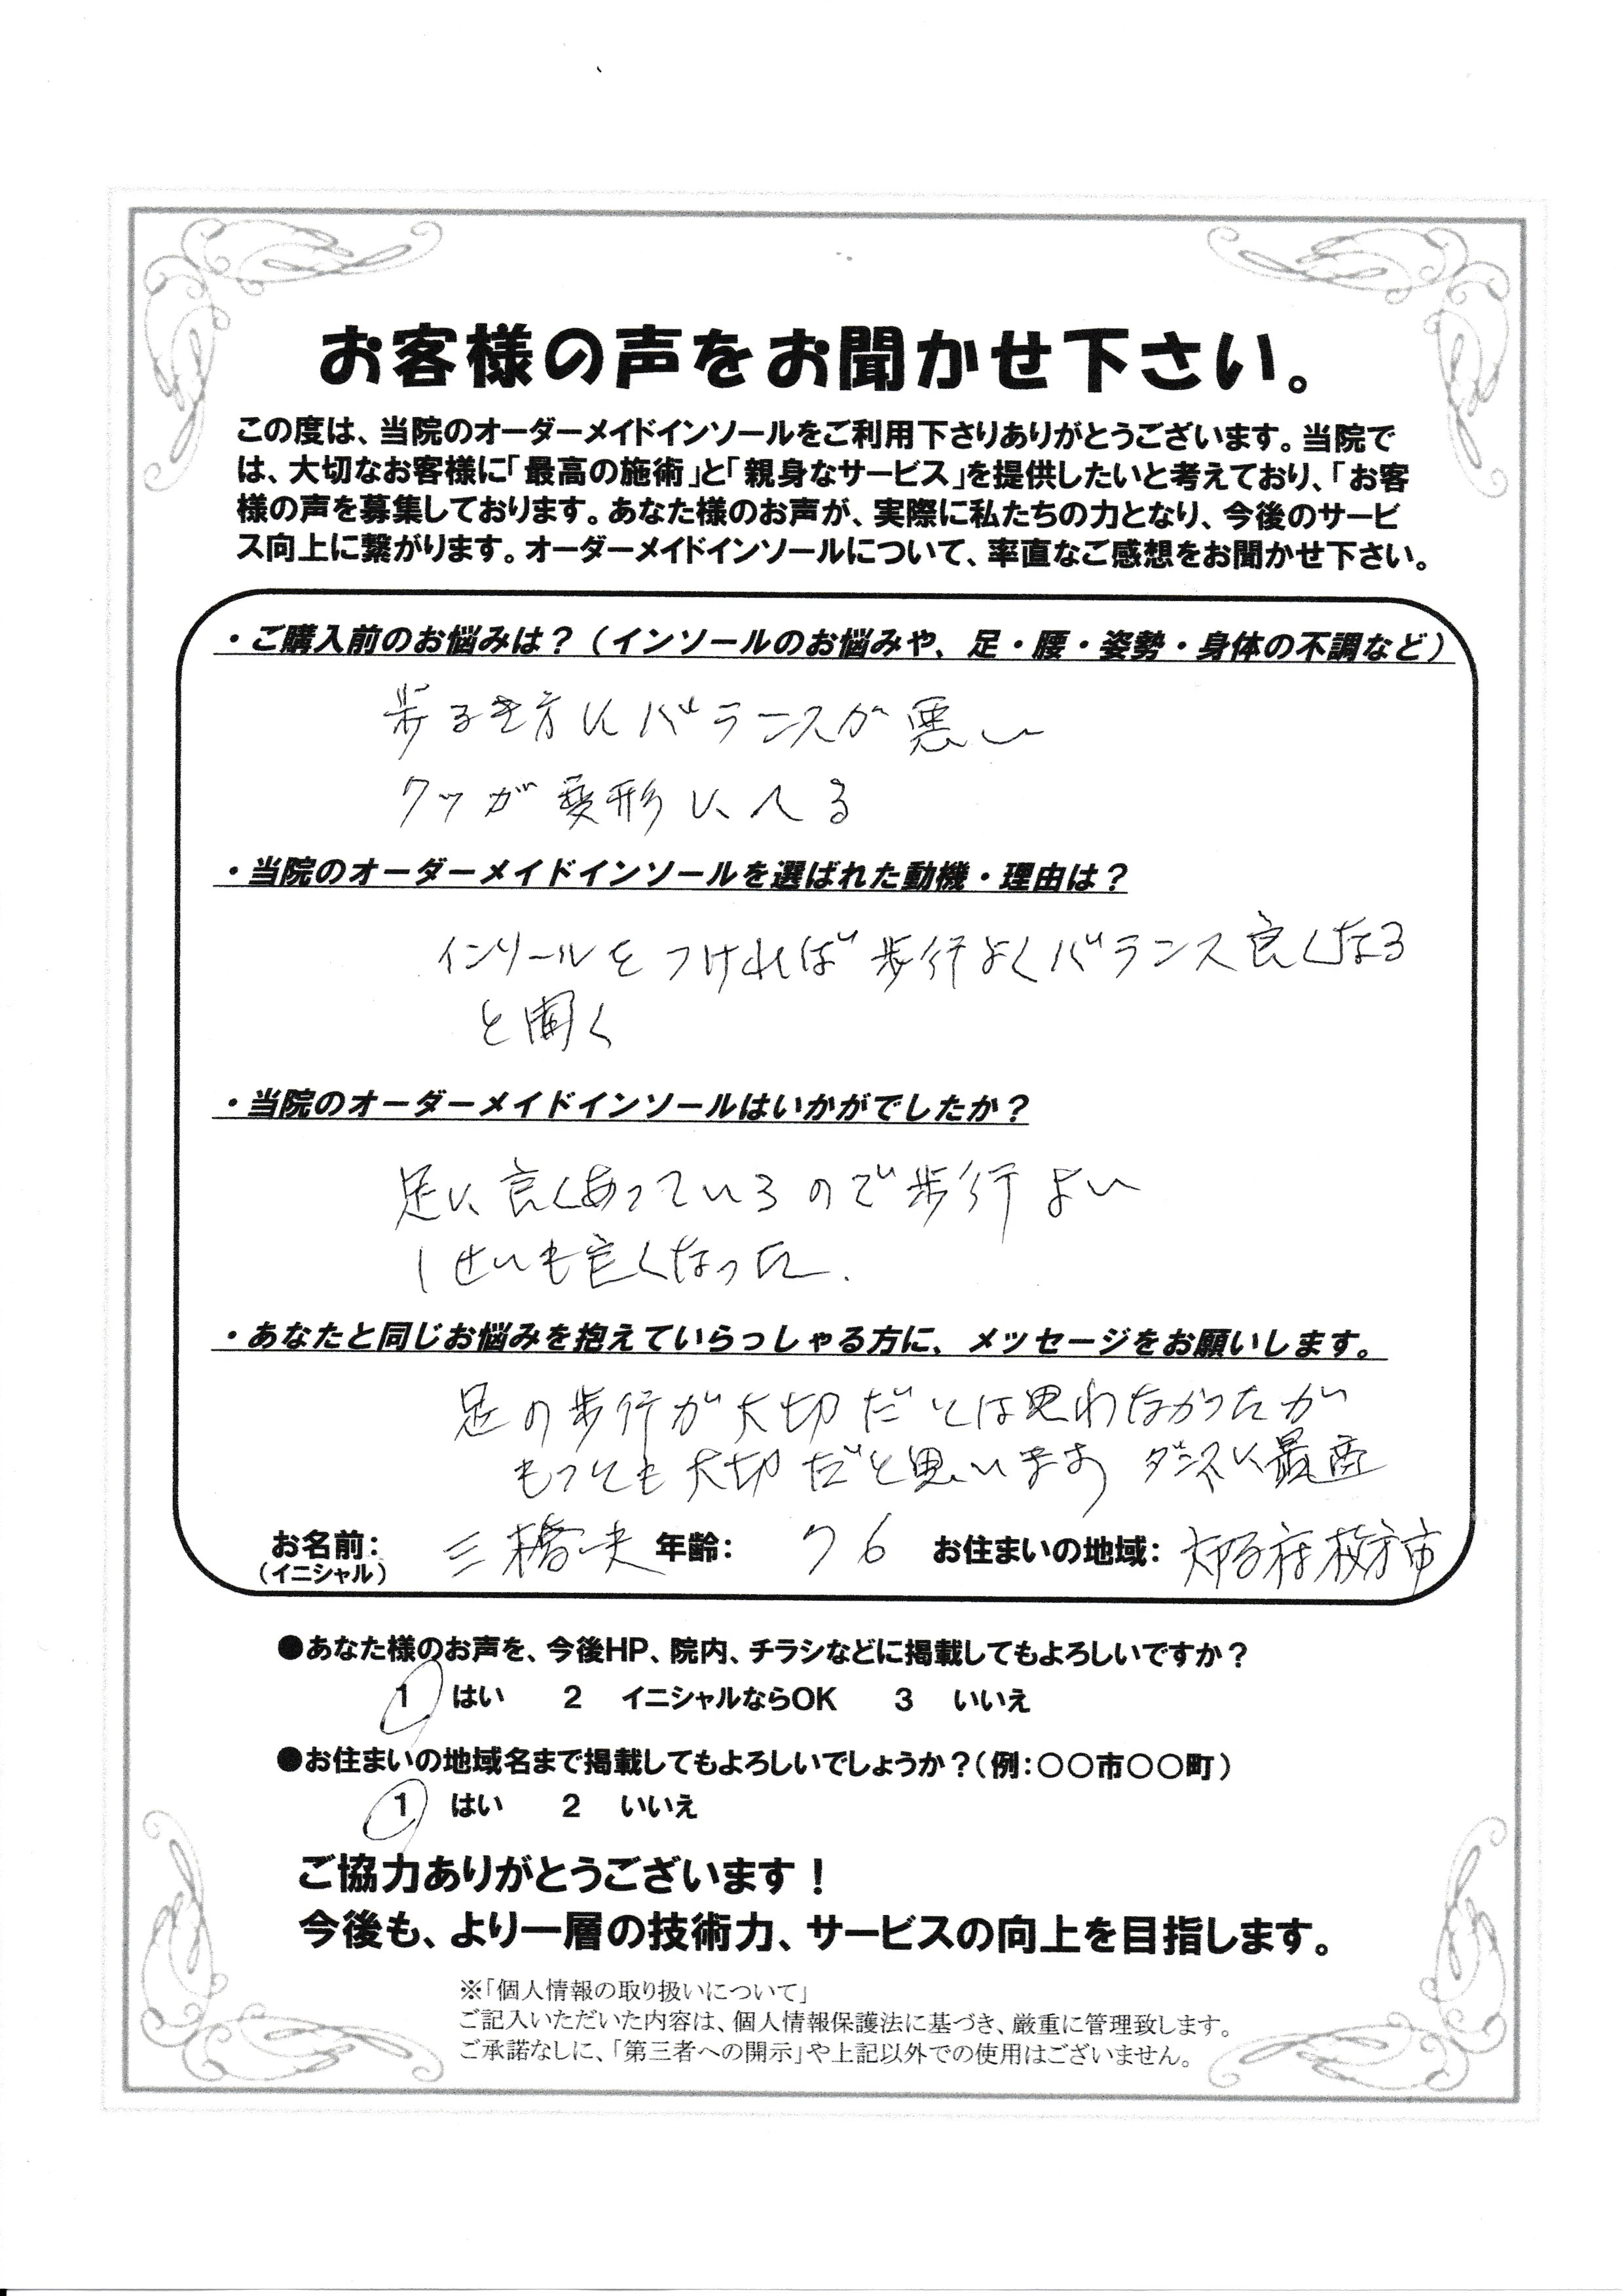 お客様の声をお聞かせ下さい。
この度は、当院のオーダーメイドインソールをご利用下さりありがとうございます。当院で
は、大切なお客様に「最高の施術」と「親身なサービス」を提供したいと考えており、「お客
様の声を募集しております。あなた様のお声が、実際に私たちの力となり、今後のサービ
ス向上に繋がります。オーダーメイドインソールについて、率直なご感想をお聞かせ下さい。
・ご購入前のお悩みは？（インソールのお悩みや、足・腰・姿勢・身体の不調など）
歩るき方にバランスが悪い
クツが変形に入る
・当院のオーダーメイドインソールを選ばれた動機・理由は？
インソールをつければ歩行よくバランス良くなる
と聞く
・当院のオーダーメイドインソールはいかがでしたか？
足に良くあっているので歩行よい
しせいも良くなった.
・あなたと同じお悩みを抱えていらっしゃる方に、メッセージをお願いします。
足の歩行が大切だとは思わなかったが
もっとも大切だと思います ダンスに最適
お名前： 三橋一夫 年齢： 76 お住まいの地域： 大阪府枚方市
（イニシャル）
●あなた様のお声を、今後HP、院内、チラシなどに掲載してもよろしいですか？
1 はい 2 イニシャルならOK 3 いいえ
●お住まいの地域名まで掲載してもよろしいでしょうか？（例：〇〇市〇〇町）
1 はい 2 いいえ
ご協力ありがとうございます！
今後も、より一層の技術力、サービスの向上を目指します。
※「個人情報の取り扱いについて」
ご記入いただいた内容は、個人情報保護法に基づき、厳重に管理致します。
ご承諾なしに、「第三者への開示」や上記以外での使用はございません。